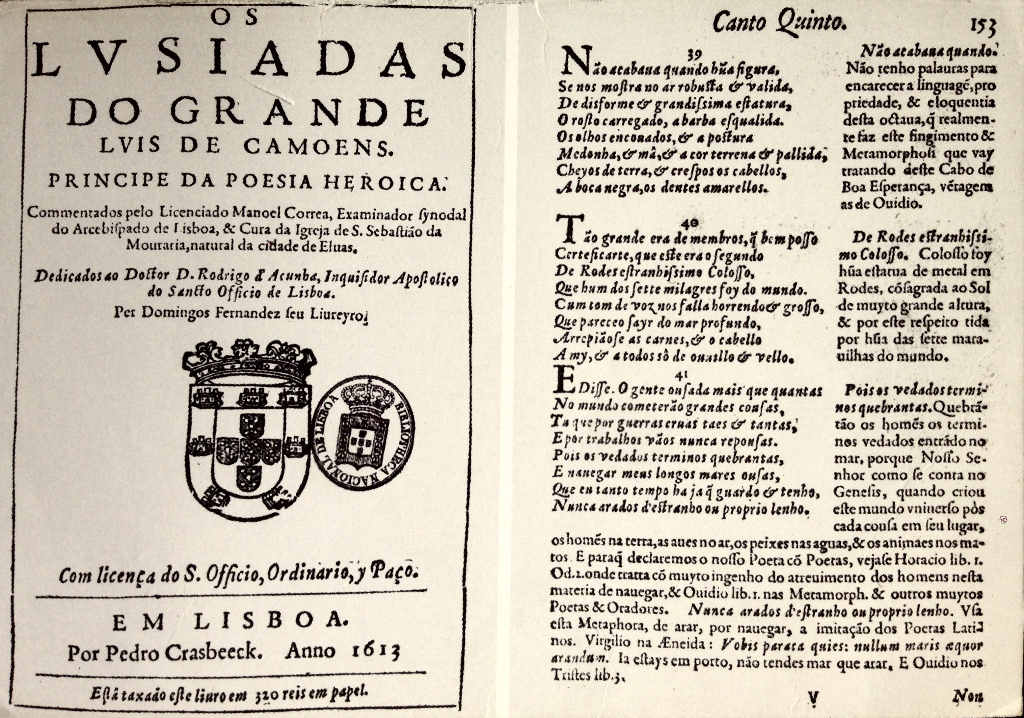 OS
LVSIADAS
DO GRANDE
LVIS DE CAMOENS.
PRINCIPE DA POESIA HEROICA.
Commentados pelo Licenciado Manoel Correa, Examinador ſynodal
do Arcebiſpado de Lisboa, & Cura da Igreja de S. Sebaſtião da
Mouraria, natural da cidade de Eluas.
Dedicados ao Doctor D. Rodrigo d'Acunha, Inquiſidor Apoſtolico
do Sancto Officio de Lisboa.
Per Domingos Fernandez ſeu Liureyro.
BIBLIOTHECA NACIONAL DE LISBOA
Com licença do S. Officio, Ordinario, y Paço.
EM LISBOA.
Por Pedro Crasbeeck. Anno 1613
Eſtá taxado eſte liuro em 320 reis em papel.
Canto Quinto. 153
39
Não acabaua quando hũa figura,
Se nos moſtra no ar robuſta & valida,
De disforme & grandiſsima eſtatura,
O roſto carregado, a barba eſqualida.
Os olhos encouados, & a poſtura
Medonha, & má, & a cor terrena & pallida,
Cheyos de terra, & creſpos os cabellos,
A boca negra, os dentes amarellos.
40
Tão grande era de membros, q̃ bem poſſo
Certeficarte, que eſte era o ſegundo
De Rodes eſtranhiſsimo Coloſſo,
Que hum dos ſette milagres foy do mundo.
Cum tom de voz nos falla horrendo & groſſo,
Que pareceo ſayr do mar profundo,
Arrepiãoſe as carnes, & o cabello
A my, & a todos ſò de ouuillo & vello.
41
E Diſſe. O gente ouſada mais que quantas
No mundo cometerão grandes couſas,
Tu que por guerras cruas taes & tantas,
E por trabalhos vãos nunca repouſas.
Pois os vedados terminos quebrantas,
E nauegar meus longos mares ouſas,
Que eu tanto tempo ha ja q̃ guardo & tenho,
Nunca arados d'eſtranho ou proprio lenho.
Não acabaua quando.
Não tenho palauras para
encarecer a linguagẽ, pro
priedade, & eloquentia
deſta octaua, q̃ realmen-
te faz eſte fingimento &
Metamorphoſi que vay
tratando deſte Cabo de
Boa Eſperança, vẽtagem
as de Ouidio.
De Rodes eſtranhiſsi-
mo Coloſſo. Coloſſo foy
hũa eſtatua de metal em
Rodes, cõſagrada ao Sol
de muyto grande altura,
& por eſte reſpeito tida
por hũa das ſette mara-
uilhas do mundo.
Pois os vedados termi-
nos quebrantas. Quebrã-
tão os homẽs os termi-
nos vedados entrãdo no
mar, porque Noſſo Se-
nhor como ſe conta no
Geneſis, quando criou
eſte mundo vniuerſo pós
cada couſa em ſeu lugar,
os homẽs na terra, as aues no ar, os peixes nas aguas, & os animaes nos ma-
tos. E paraq̃ declaremos o noſſo Poeta cõ Poetas, vejaſe Horacio lib. 1.
Od. 2. onde tratta cõ muyto ingenho do atreuimento dos homens neſta
materia de nauegar, & Ouidio lib. 1. nas Metamorph. & outros muytos
Poetas & Oradores. Nunca arados d'eſtranho ou proprio lenho. Vſa
eſta Metaphora, de arar, por nauegar, a imitação dos Poetas Lati-
nos. Virgilio na Æneida: Vobis parata quies: nullum maris æquor
arandum. Ia eſtays em porto, não tendes mar que arar. E Ouidio nos
Triſtes lib. 3.
V Non